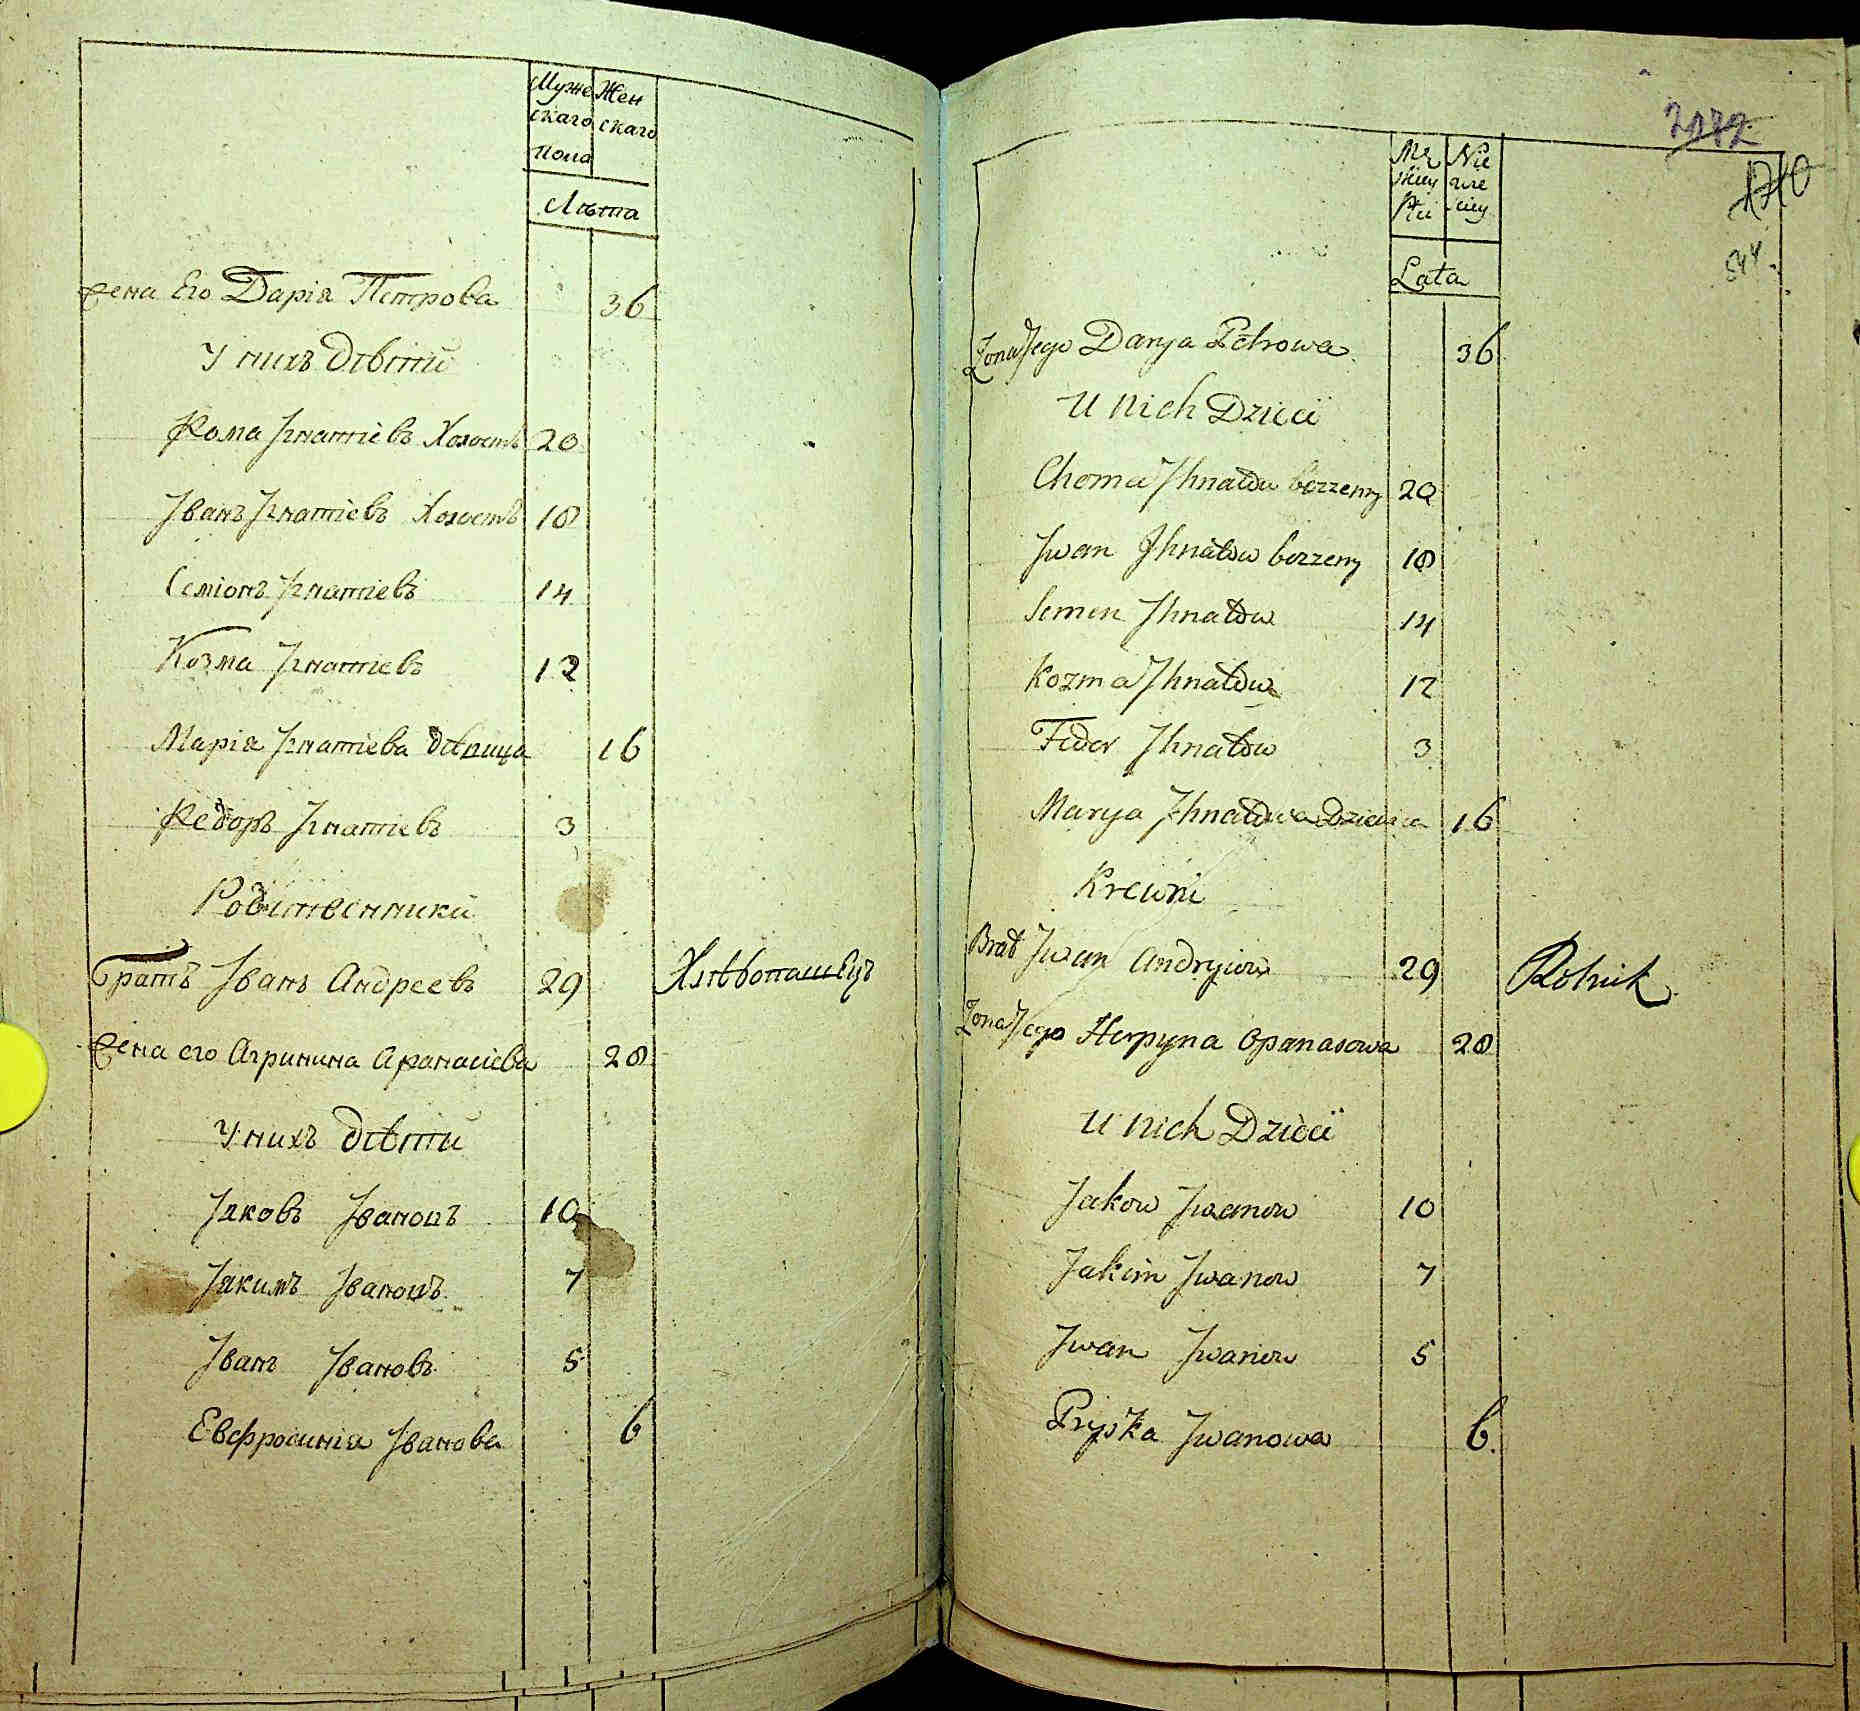 Муже Жен
скаго скаго
пола
Лѣта
жена Его Дарія Петрова 36
У нихъ дѣти
Ѳома Игнатіевъ Холостъ 20
Іванъ Игнатіевъ Холостъ 18
Семіонъ Игнатіевъ 14
Козма Игнатіевъ 12
Марія Игнатіева дѣвица 16
Ѳедоръ Игнатіевъ 3
Родственники
Братъ Іванъ Андреевъ 29 Хлѣбопашецъ
жена его Агрипина Афанасіева 28
У нихъ дѣти
Іаковъ Івановъ 10
Іакимъ Івановъ 7
Іванъ Івановъ 5
Евфросинія Іванова 6
2172
1710
544
Lata
Żona Jego Darya Petrowa 36
U nich Dzieci
Choma Ihnatów bezzenny 20
Jwan Ihnatów bezzenny 18
Semen Ihnatów 14
Kozma Ihnatów 12
Fedor Ihnatów 3
Marya Ihnatowa Dziewica 16
Krewni
Brat Jwan Andryiow 29 Rolnik
Żona Jego Herpyna Opanasowa 28
U nich Dzieci
Jakow Jwanow 10
Jakim Jwanow 7
Jwan Jwanow 5
Pryśka Jwanowa 6.